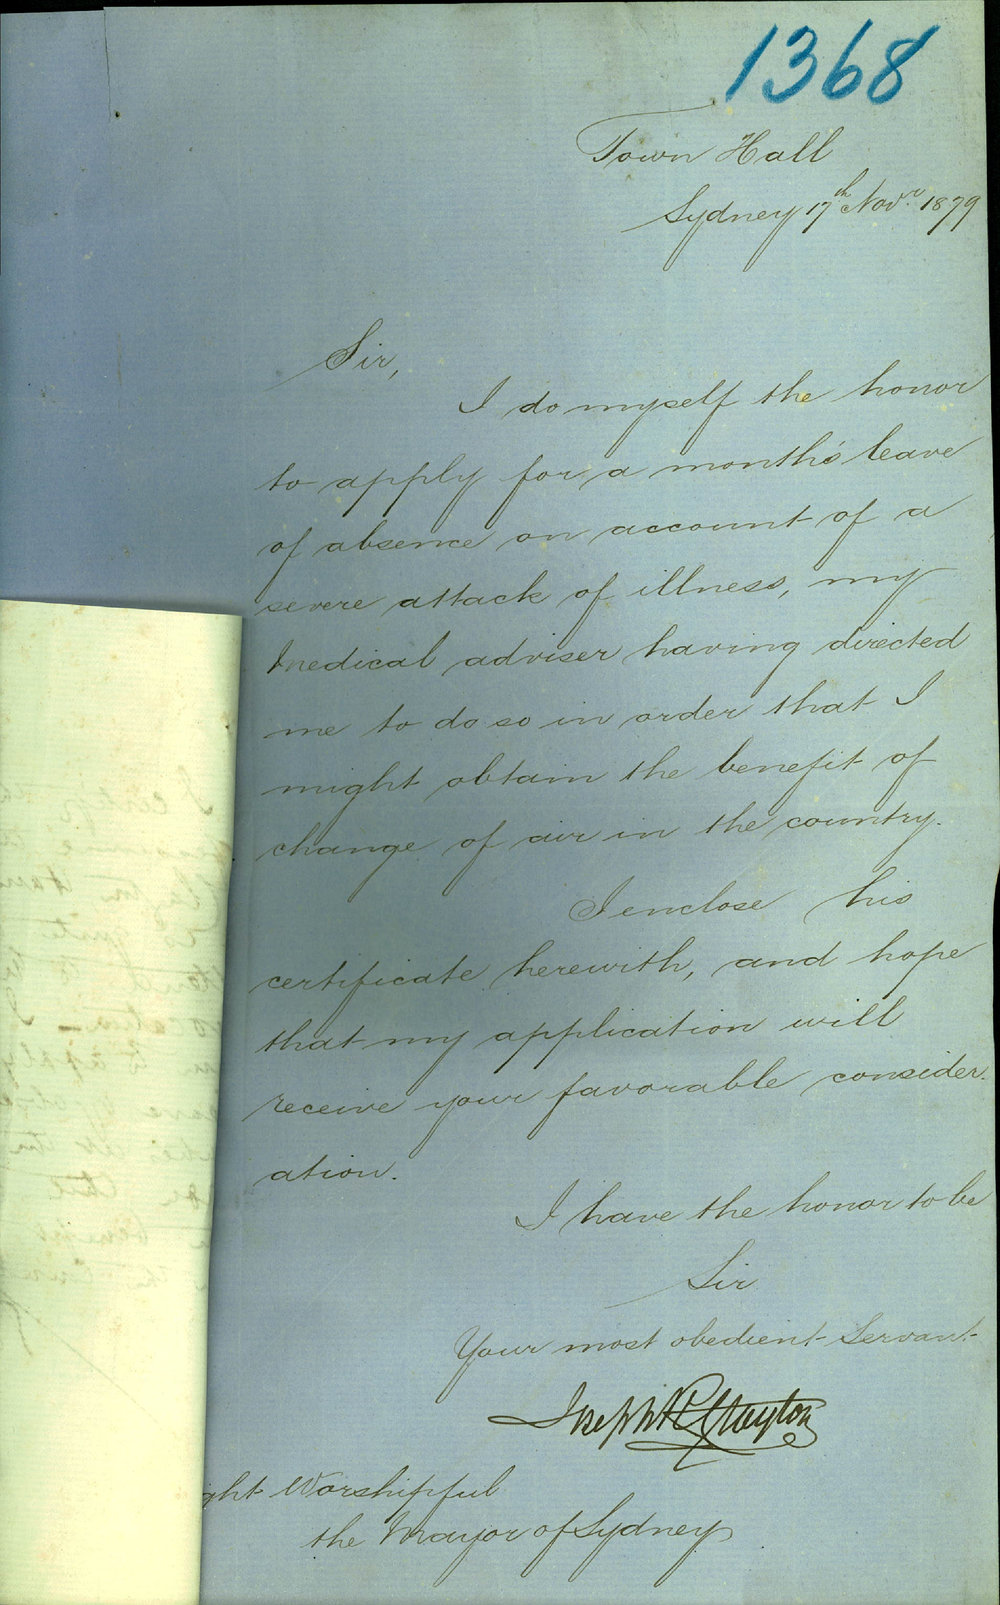 1368
Town Hall
Sydney 17th Novr. 1879
Sir,
I do myself the honor
to apply for a month's leave
of absence on account of a
severe attack of illness, my
Medical adviser having directed
me to do so in order that I
might obtain the benefit of
change of air in the country.
I enclose his
certificate herewith, and hope
that my application will
receive your favorable consider-
ation.
I have the honor to be
Sir
Your most obedient Servant
Joseph Clayton
ght Worshipful
the Mayor of Sydney